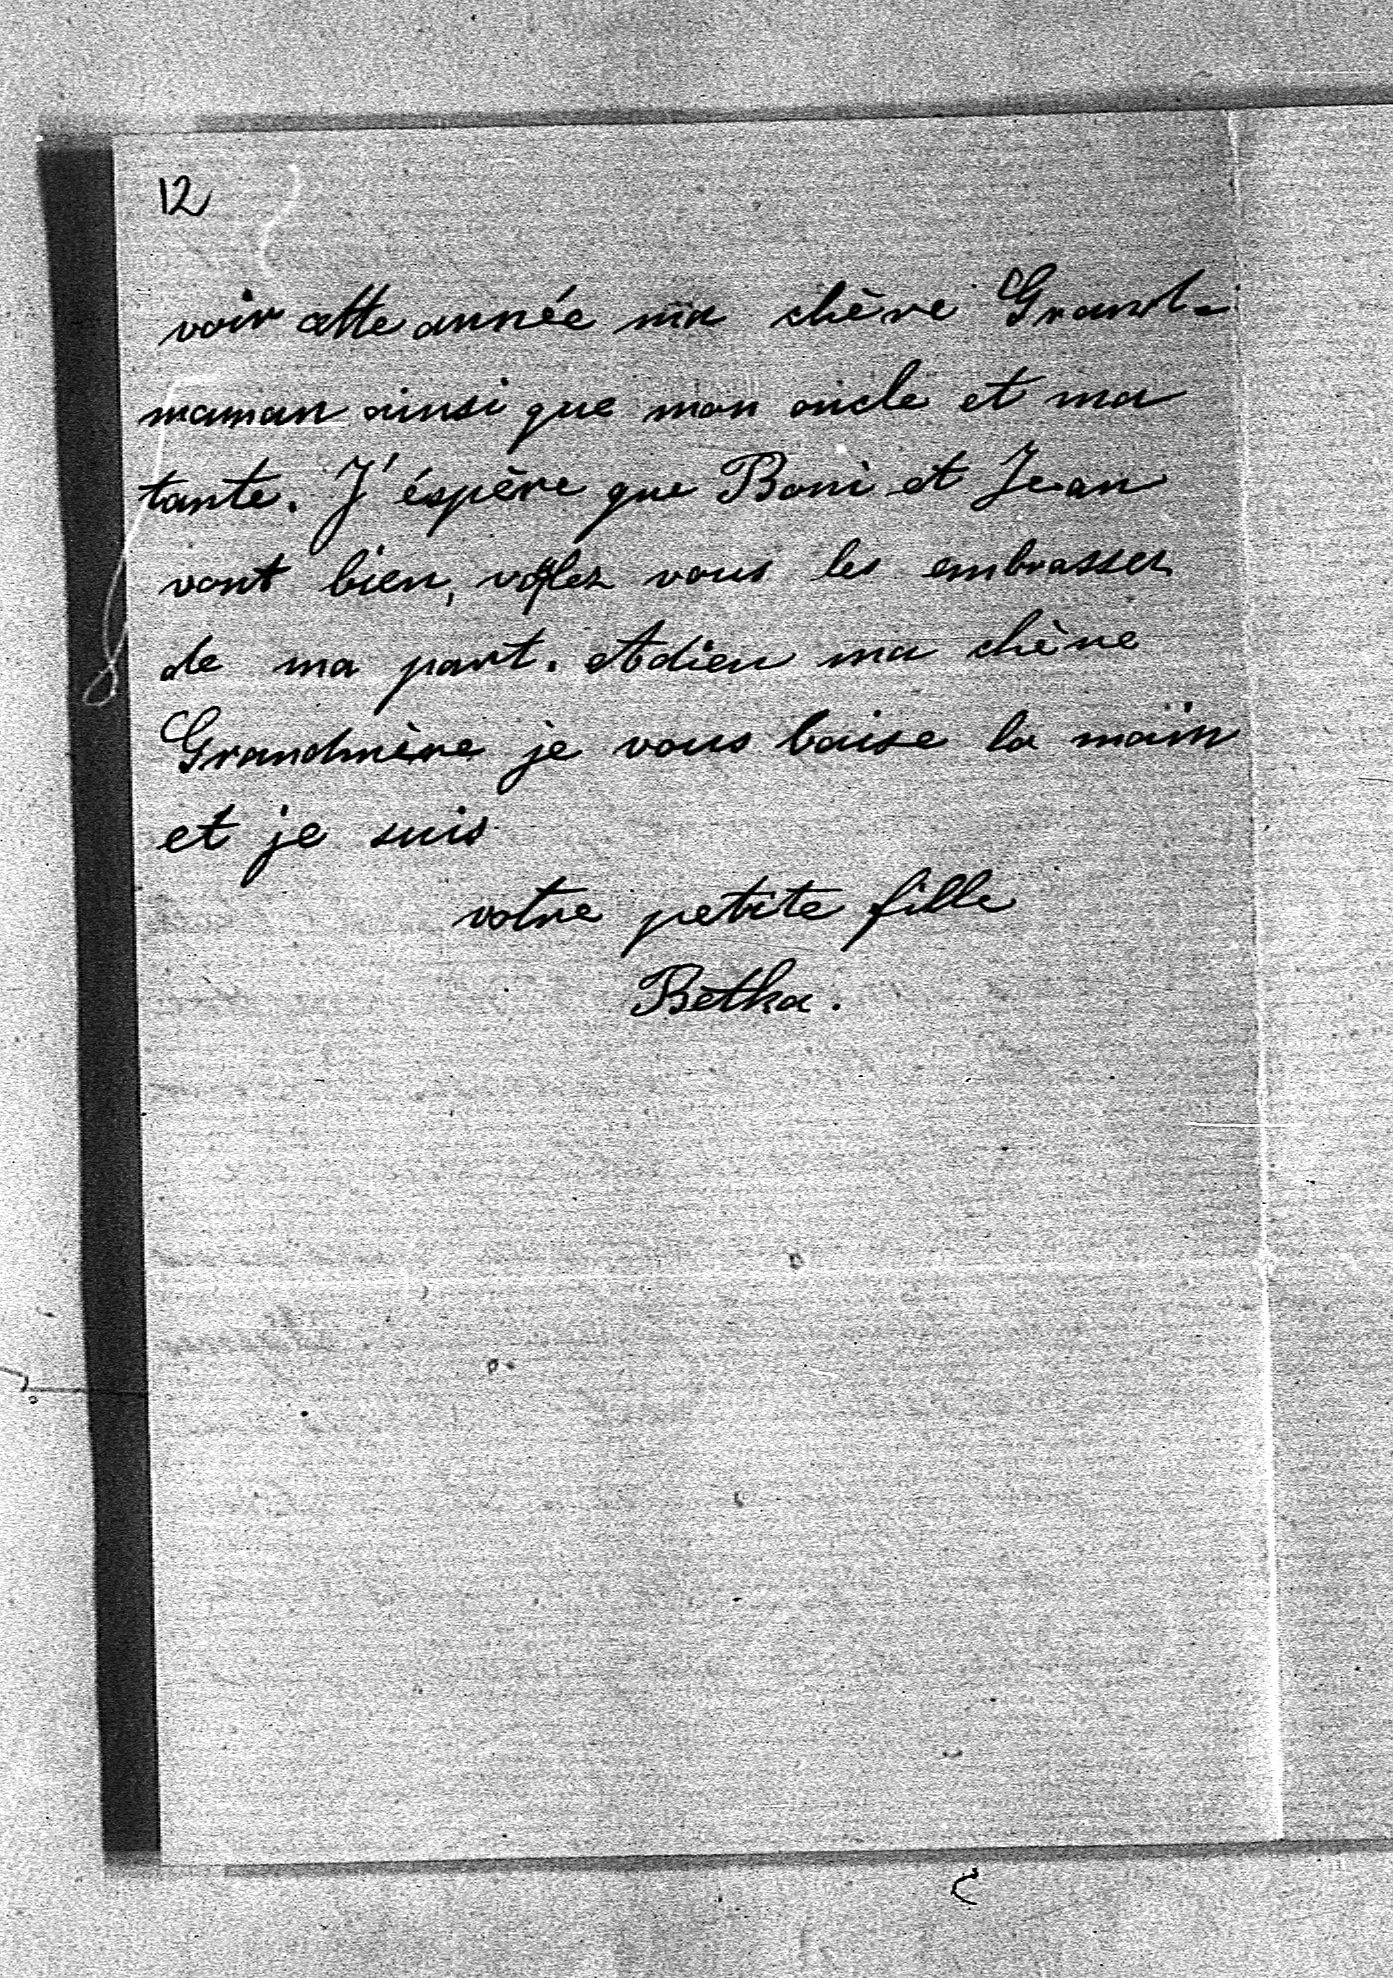 12
voir cette année ma chère Grand-
maman ainsi que mon oncle et ma
tante. J'éspère que Boni et Jean
vont bien, voulez vous les embrasser
de ma part. Adieu ma chère
Grandmère je vous baise la main
et je suis
votre petite fille
Betka.